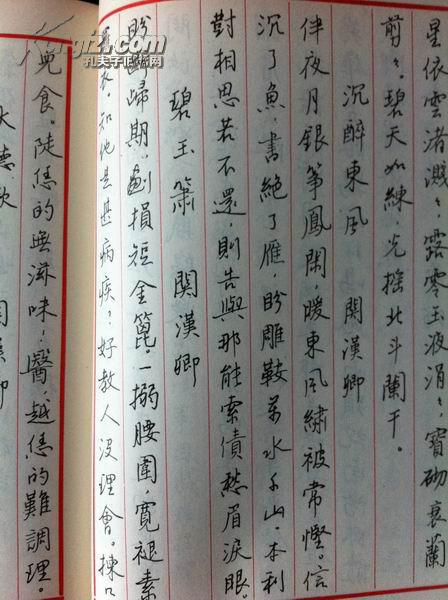 星依雲渚濺々。露零玉液涓々。寶砌衰蘭
剪々。碧天如練。光搖北斗闌干。
沉醉東風 関漢卿
伴夜月銀箏鳳閑，暖東風繡被常慳。信
沉了魚，書絕了雁，盼雕鞍萬水千山。本利
對相思若不還，則告與那能索債愁眉淚眼。
碧玉簫 関漢卿
盼斷歸期，劃損短金篦。一搦腰圍，寬褪素
衣。知他是甚病疾？好教人沒理會。揀口
兒食。陡恁的無滋味，醫，越恁的難調理。
大德歌
孔夫子旧书网